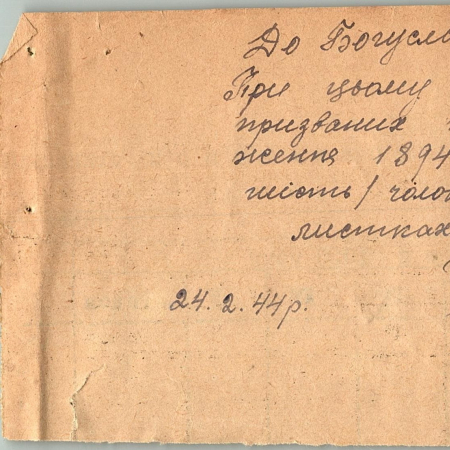 До Богусла
При цьому
призваних
ження 1894
шість/ чоло
листках
24. 2. 44р.